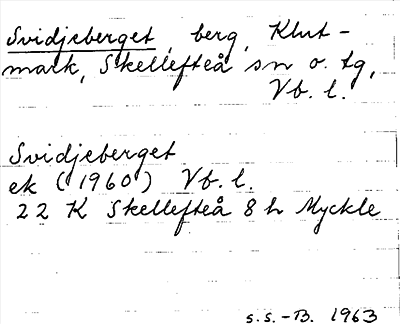 Svidjeberget, berg, Klut-
mark, Skellefteå sn o. tg,
Vb. l.
Svidjeberget
ek (1960) Vb. l.
22 K Skellefteå 8 h Myckle
S.S.-B. 1963